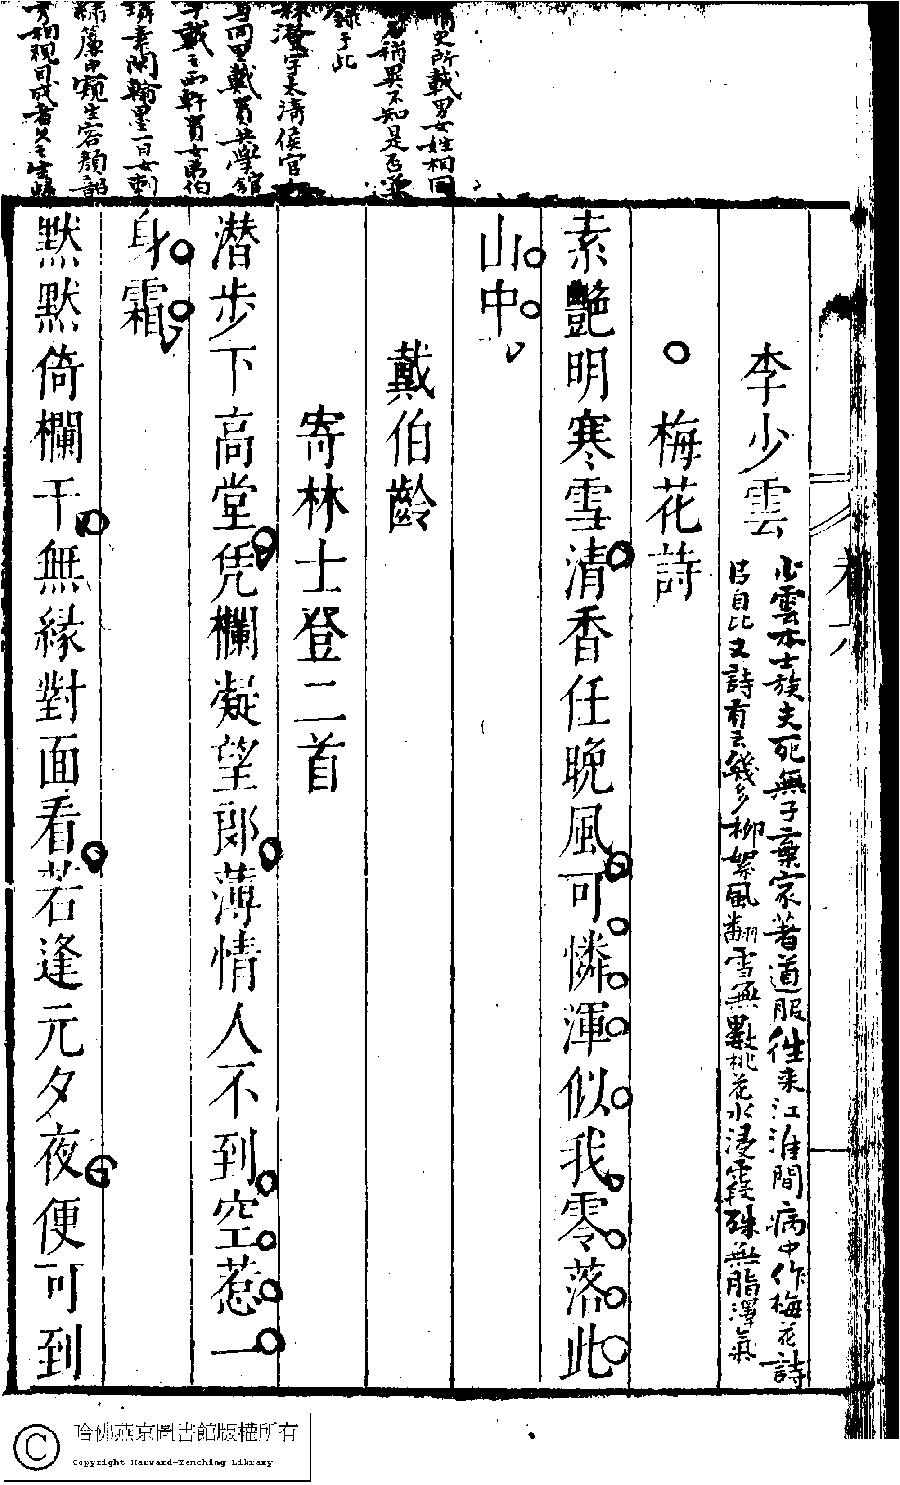 史所載男女姓相同
名稱異不知是否並
錄于此
林澄字太清侯官人
与同里戴貴共學館
于戴之西軒貴女弟伯
璘素閑翰墨一日女刺
綉簾中窺生容顏韶
秀相視目成者久之生歸
卷六
李少雲
少雲本士族夫死無子棄家著道服往来江淮間病中作梅花詩
皆自比又詩有云幾多柳絮風翻雪無數桃花水浸霞殊無脂澤氣
梅花詩
素艷明寒雪清香任晚風可憐渾似我零落此
山中
戴伯齡
寄林士登二首
潛步下高堂凭欄凝望郎薄情人不到空惹一
身霜
默默倚欄干無緣對面看若逢元夕夜便可到
哈佛燕京圖書館版權所有
Copyright Harvard-Yenching Library